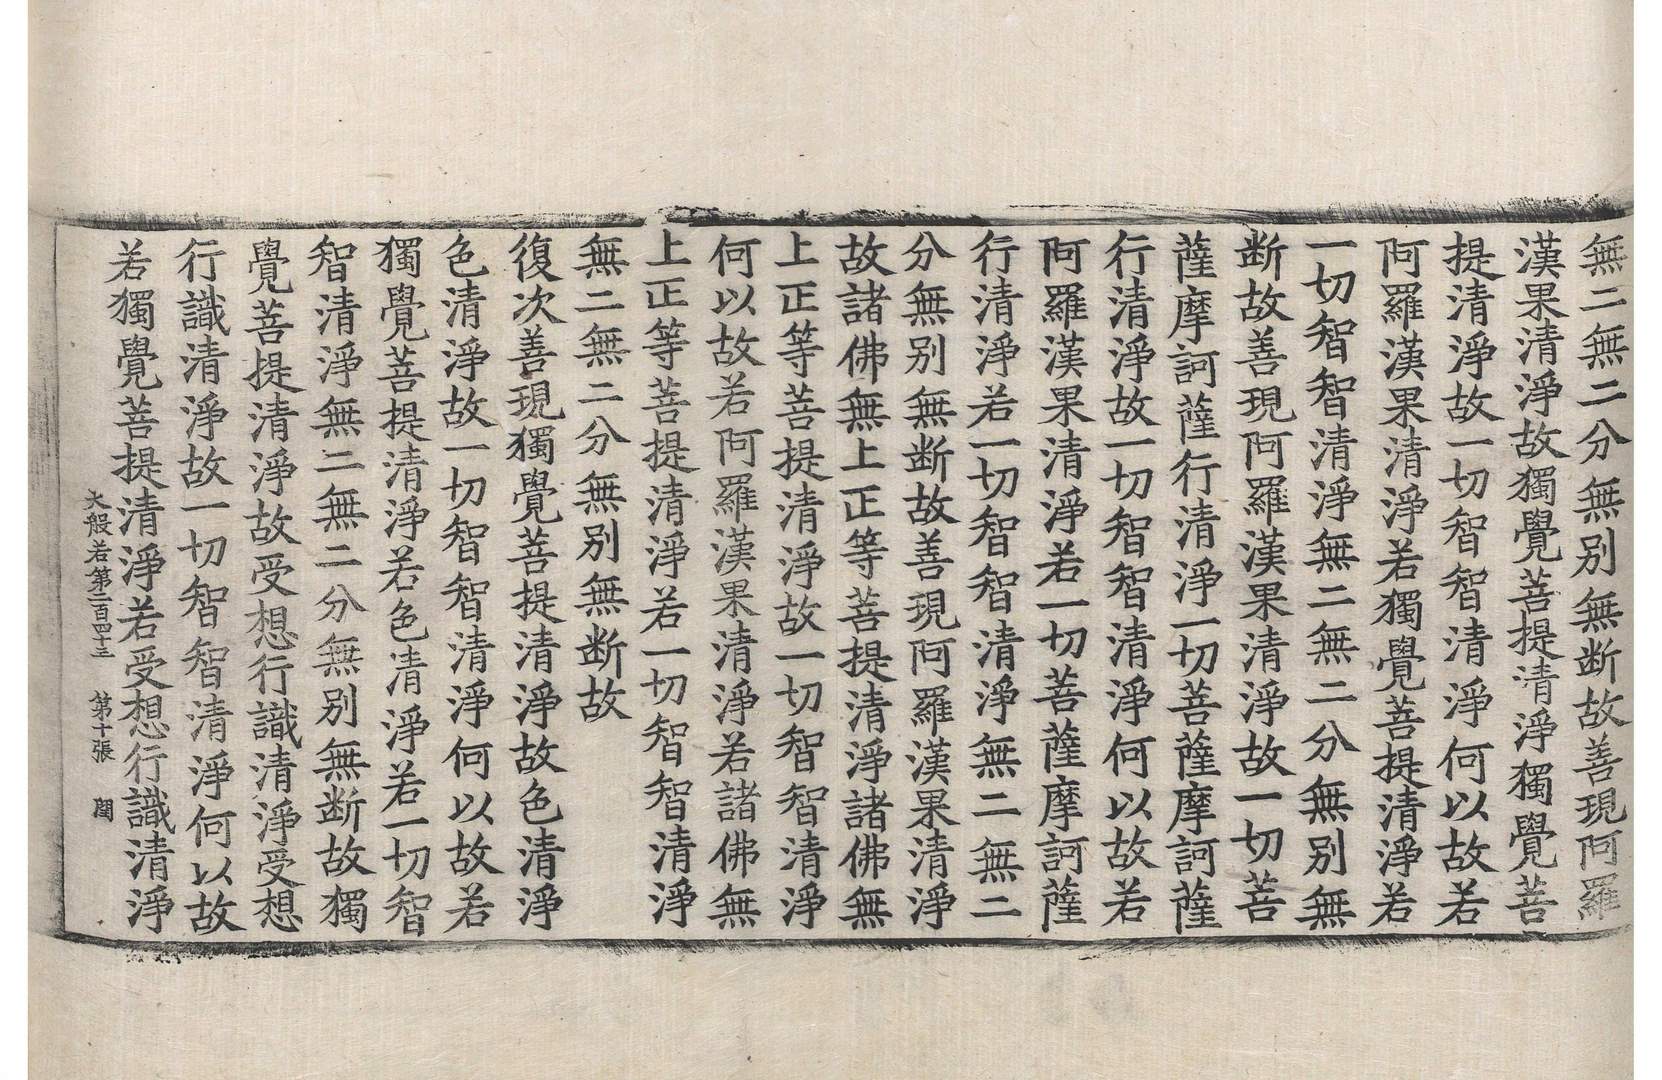 無二無二分無別無断故善現阿羅
漢果清淨故獨覺菩提清淨獨覺菩
提清淨故一切智智清淨何以故若
阿羅漢果清淨若獨覺菩提清淨若
一切智智清淨無二無二分無別無
断故善現阿羅漢果清淨故一切菩
薩摩訶薩行清淨一切菩薩摩訶薩
行清淨故一切智智清淨何以故若
阿羅漢果清淨若一切菩薩摩訶薩
行清淨若一切智智清淨無二無二
分無別無断故善現阿羅漢果清淨
故諸佛無上正等菩提清淨諸佛無
上正等菩提清淨故一切智智清淨
何以故若阿羅漢果清淨若諸佛無
上正等菩提清淨若一切智智清淨
無二無二分無別無断故
復次善現獨覺菩提清淨故色清淨
色清淨故一切智智清淨何以故若
獨覺菩提清淨若色清淨若一切智
智清淨無二無二分無別無断故獨
覺菩提清淨故受想行識清淨受想
行識清淨故一切智智清淨何以故
若獨覺菩提清淨若受想行識清淨
大般若第二百四十三 第十張 閏